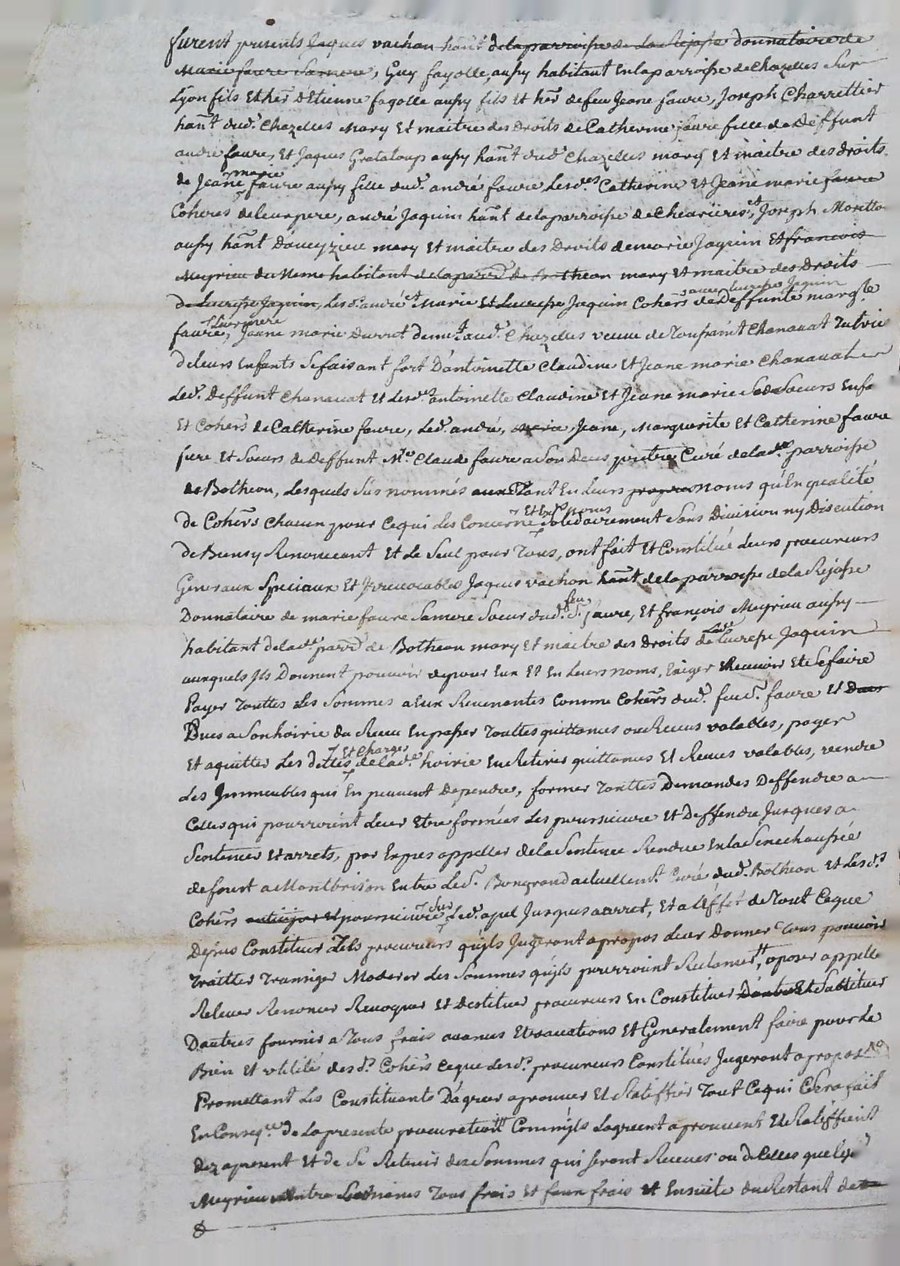 furent presents Jaques vachon hant de la parroisse de La Rejasse donnataire de
Marie faure Samere, Guy fayolle aussy habitant En la parroisse de chazelles Sur
Lyon fils Et her d'Etienne fayolle aussy fils Et her de feu Jeane faure, Joseph Charrettier
hant dud. Chazelles Mary Et maitre des Droits de Catherine faure fille de Deffunt
andre faure, Et Jaques Grataloup aussy hant dud. Chazelles mary Et maitre des droits
de Jeane marie faure aussy fille dud. andré faure Lesdes Catherine Et Jeane marie faure
Coheres de leur pere, andré Jaquin hant de la parroisse de Chevrieres, Joseph
aussy hant D'aveyzieu mary Et maitre des Droits de marie Jaquin Et francois
Meyrieu du meme habitant de la parr de Botheon mary Et maitre des Droits
de Lucresse Jaquin, Les d. andré Et Marie Et Lucresse Jaquin Cohers avec Lucresse Jaquin de deffunte margte
faure Leur mere, Jeane marie Durret demt aud. Chazelles veuve de Toussaint Chanavat Tutrice
de leurs Enfants Se faisant fort D'antoinette Claudine Et Jeane marie Chanavat
Led. Deffunt Chanavat Et Lesdes antoinette Claudine Et Jeane marie Soeurs
Et Cohers de Catherine faure, Led. andre, Jeane, Marguerite Et Catherine faure
frere Et Soeurs de Deffunt Mre Claude faure a Son Deces pretre Curé de lade parroisse
de Botheon, Lesquels Sus nommés Tant En Leurs propres noms qu'En qualité
de Cohers Chacun pour Ce qui les Concerne Solidairement Sans Division ny Discution
de Biens y Renoncant Et Le Seul pour Tous, ont fait Et Constitué Leurs procureurs
Generaux Speciaux Et Irrevocables Jaques vachon hant de la parroisse de la Rejasse
Donnataire de marie faure Samere Soeur dud. feu Sr. faure, Et françois Meyrieu aussy
habitant de lade parr de Botheon mary Et maitre des Droits de Lade Lucresse Jaquin
auxquels Ils Donnent pouvoir de pour Eux Et En Leurs noms, Exiger Recevoir Et Se faire
Payer Touttes Les Sommes a Eux Revenantes Comme Cohers dud. feu Sr. faure Et
Dues a Son hoirie du Receu En passer Touttes quittances ou Receus valables, payer
Et aquitter Les dettes Et Charges de lade hoirie En Retirer quittances Et Receus valables, vendre
Les Immeubles qui En peuvent Dependre, former Touttes Demandes Deffendre a
Celles qui pourroient Leur Etre formées Les poursuivre Et Deffendre Jusques a
Sentence Et arrets, par Expres appeller de la Sentence Rendue En la Senechaussée
de forest a Montbrison Entre Le Sr. Bongrand actuellemt Curé dud. Botheon Et Lesd.
Cohers poursuivre Sur Led. apel Jusques a arret, Et a L'Effet de Tout Ceque
Dessus Constituer Tels procureurs quils Jugeront a propos Leur Donner Tous pouvoir
Traitter Transiger Moderer Les Sommes quils pourroint Reclamer, oposer appeller
Relever Renoncer Revoquer Et destituer procureurs En Constituer Et Substituer
D'autres fournir a Tous frais avances Et vacations Et Generalement faire pour Le
Bien Et utilité desd. Cohers Ceque Lesd. procureurs Constitués Jugeront a propos
Promettant Les Constituants D'agreer aprouver Et Ratiffier Tout Cequi Sera fait
En Conseqce de La presente procuration Comm'ils Lagreent aprouvent Et Ratiffient
dez a present Et de Se Retenir des Sommes qui Seront Receues ou de Celles que Led
Meyrieu Tous frais Et faux frais Et Ensuite du Restant de